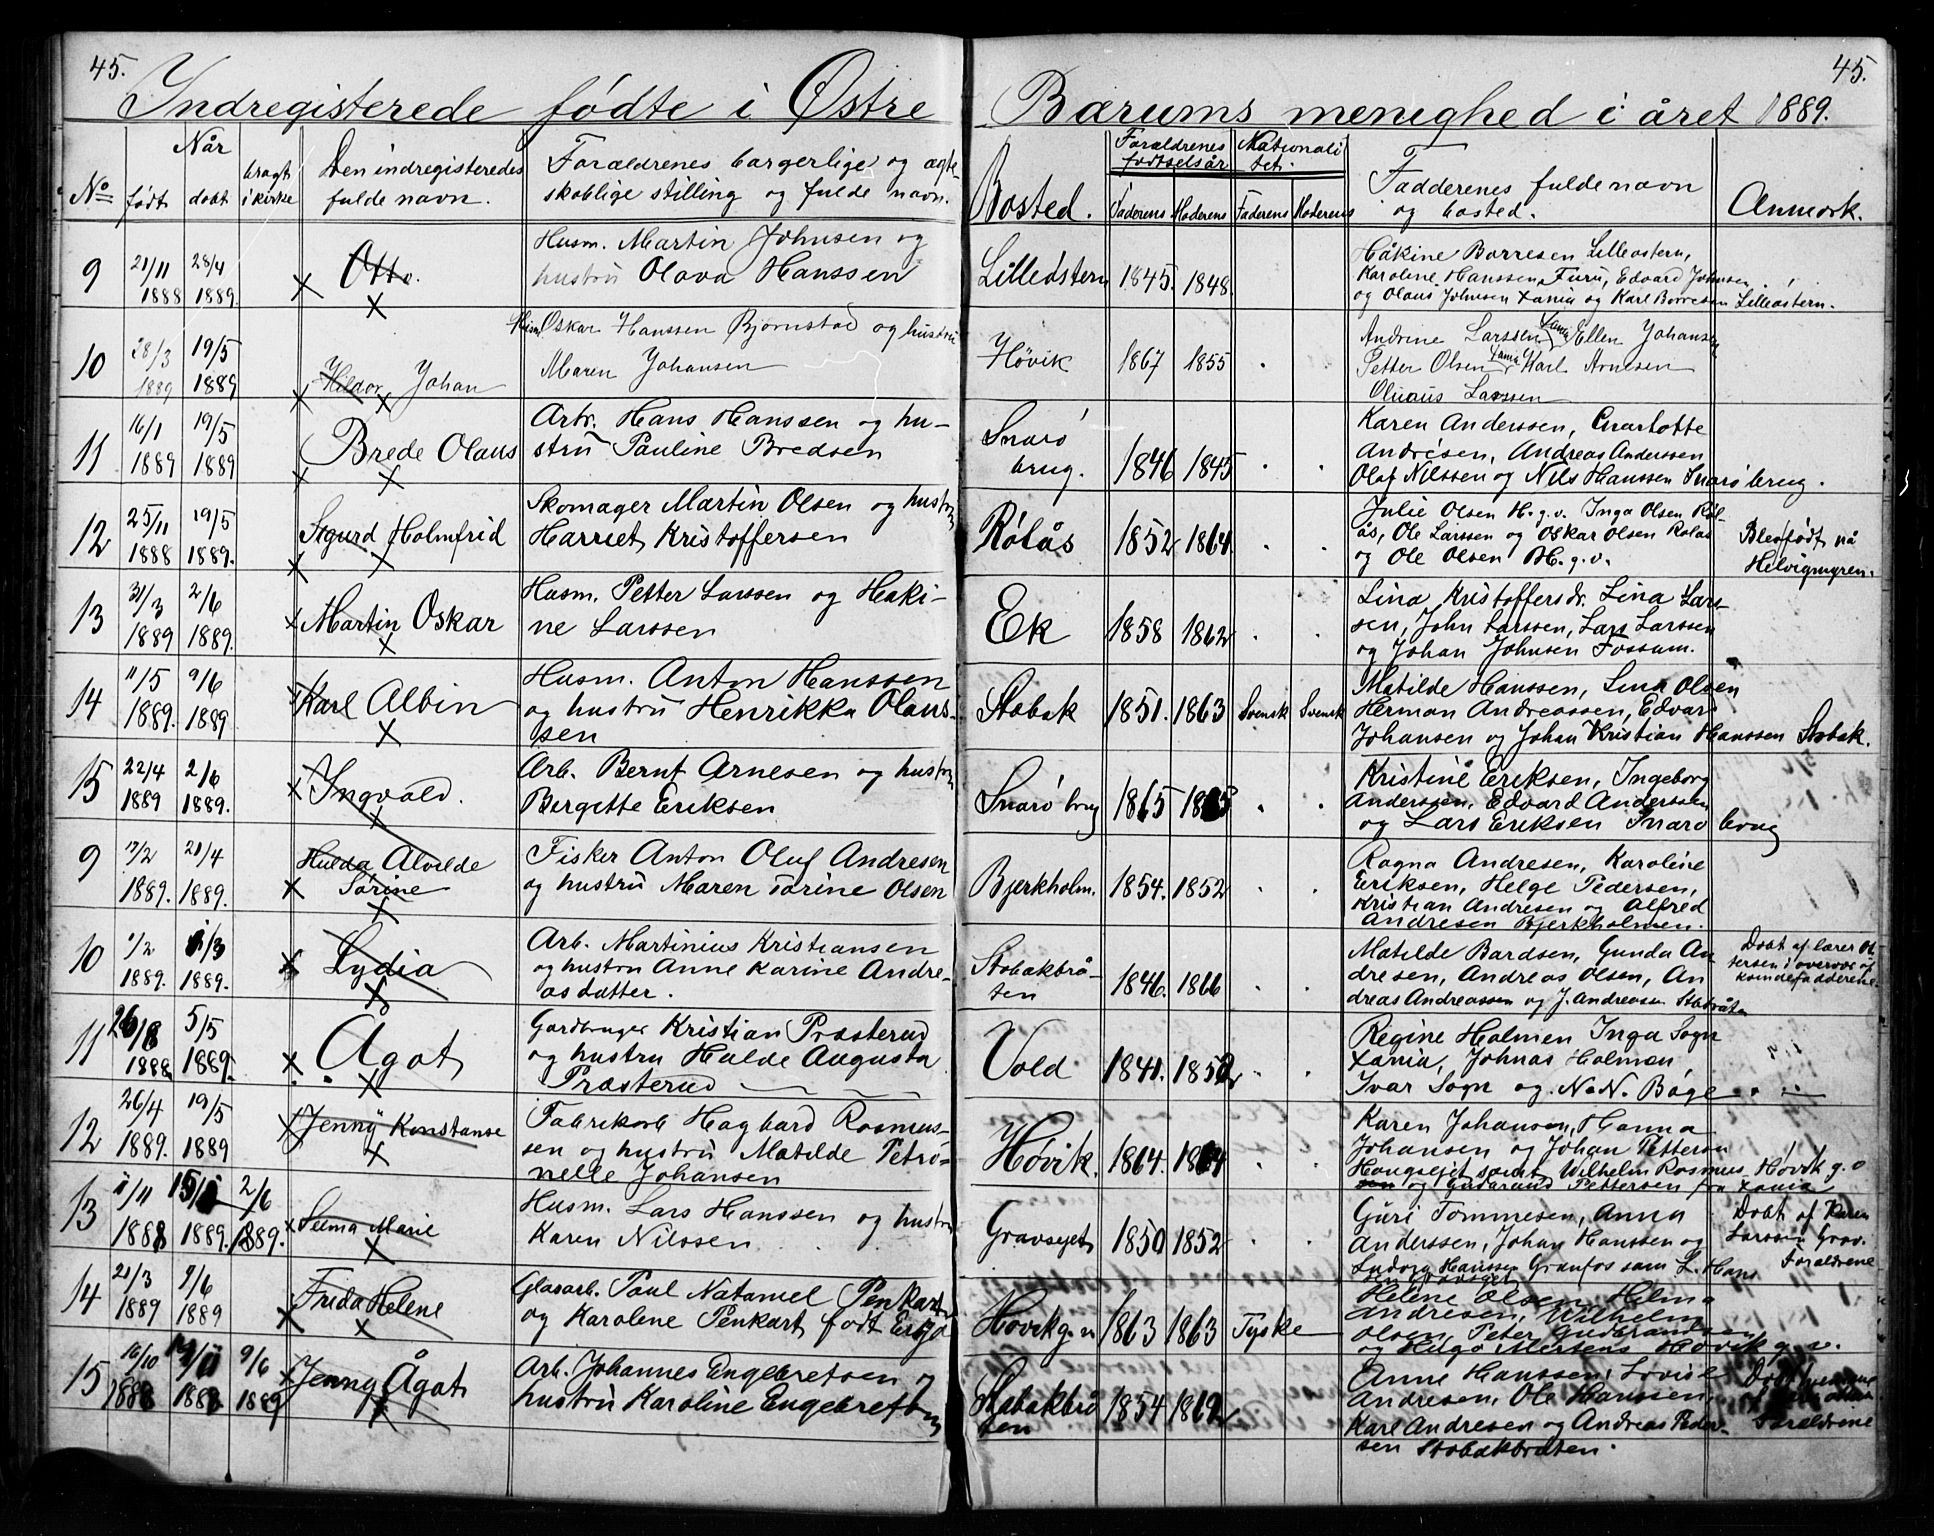 45.
Indregisterede fødte i Østre
45.
Bærums menighed i året 1889.
No
Når
født
døbt
bragt i kirke
Den indregisteredes fulde navn.
Forældrenes borgerlige og ægte-
skablige stilling og fulde navn.
Bosted.
Forældrenes fødselsår
Faderens
Moderens
Nationalitet.
Faderens
Moderens
Fadderenes fulde navn
og bosted.
Anmærk.
9
21/11 28/4
1888 1889.
Otto.
Husm. Martin Johnsen og
hustru Olava Hanssen
Lilleøstern 1845. 1848.
Håkine Børresen Lilleøstern,
Karoline Hanssen Furu, Edvard Johnsen
og Olaus Johnsen Xania og Karl Børresen Lilleøstern.
10
28/3 19/5
1889 1889
Hildor Johan
Husm. Oskar Hanssen Bjørnstad og hustru
Maren Johansen
Høvik 1867 1855
Andrine Larssen Xania Ellen Johansen
Petter Olsen Xania Karl Arnesen
Larssen
11
16/1 19/5
1889 1889
Brede Olaus
Arb. Hans Hanssen og hu-
stru Pauline Bredsen
Snarø
brug. 1846 1845
Karen Anderssen, Charlotte
Andrésen, Andreas Anderssen
Olaf Nilssen og Nils Hanssen Snarø brug.
12
25/11 19/5
1888 1889.
Sigurd Holmfrid
Skomager Martin Olsen og hustru
Harriet Kristoffersen
Rølås 1852 1864.
Julie Olsen H.g.v. Inga Olsen Røl-
ås, Ole Larssen og Oskar Olsen Rølås
og Ole Olsen H.g.v.
Blev født på
Helvigmyren.
13
31/3 2/6
1889 1889.
Martin Oskar
Husm. Petter Larssen og Haki-
ne Larssen
Ek 1858 1862
Lina Kristoffersdr. Lina Lars-
sen, John Larssen, Lars Larssen
og Johan Johnsen Fossum.
14
11/5 9/6
1889. 1889
Karl Albin
Husm. Anton Hanssen
og hustru Henrikka Olaus-
sen
Stabæk 1851. 1863 Svensk Svensk
Matilde Hanssen, Lina Olsen
Herman Andreassen, Edvard
Johansen og Johan Kristian Hanssen Stabæk.
15
22/4 2/6
1889 1889.
Ingvald.
Arb. Bernt Arnesen og hustru
Bergitte Eriksen
Snarø brug 1865 1865
Kristine Eriksen, Ingeborg
Anderssen, Edvard Anderssen
og Lars Eriksen Snarø brug
9
17/2 21/4
1889. 1889.
Hulda Alvilde
Sørine
Fisker Anton Oluf Andresen
og hustru Maren Tørine Olsen
Bjerkholm. 1854. 1852
Ragna Andresen, Karoline
Eriksen, Helge Pedersen,
Kristian Andresen og Alfred
Andresen Bjerkholmen.
10
1/2
1889. 1889.
Lydia
Arb. Martinius Kristiansen
og hustru Anne Karine Andre-
asdatter.
Stabækbrå-
ten 1846. 1866
Matilde Bardsen, Gunda An
dresen, Andreas Olsen, An
dreas Andreassen og J. Andreasen Stabråten
Døbt af lærer Ot-
tersen i overvær af
kvindefadderene.
11
5/5
1888 1889.
Ågot
Gårdbruger Kristian Præsterud
og hustru Hulde Augusta
Præsterud
Vold 1841. 1852
Regine Holmen Inga Sogn
Xania, Johnas Holmen
Ivar Sogn og N.N. Bøge
12
26/4 19/5
1889. 1889
Jenny Konstanse
Fabrikarb Hagbard Rasmus-
sen og hustru Matilde Petro-
nelle Johansen
Høvik. 1864. 1864
Karen Johansen, Hanna
Johansen og Johan Petterson
Haugsejet samt Wilhelm Rasmus Høvik g.v
sen og Gudbrand Pettersen fra Xania
13
11/11 2/6
1888 1889. 1889.
Selma Marie
Husm. Lars Hanssen og hustru
Karen Nilssen
Gravsejet 1850 1852
Guri Tommesen, Anna
Anderssen, Johan Hanssen og
Ludvig Hanssen Granfos sam L. Hans
sen Gravsejet
Døbt af Karen
Larssen Grav.
Forældrene
14
21/3 9/6
1889 1889
Frida Helene
Glasarb. Paul Natanael Penkart
og Karoline Penkart født
Høvik g.v. 1863 1863 Tyske
Helene Olsen, Helma
Andresen, Wilhelm
Olsen, Peter Gudbrandsen
og Hugo Mertens Høvik g.v.
15
16/10 9/6
1888 1888 1889
Jenny Ågot
Arb. Johannes Engebretsen og
hustru Karoline Engebretsen
Stabækbrå
ten 1854 1862
Anne Hanssen, Lovise
Andresen, Ole Hanssen,
Karl Andresen og Andreas Peder-
sen Stabækbråten.
Døbt
Forældrene